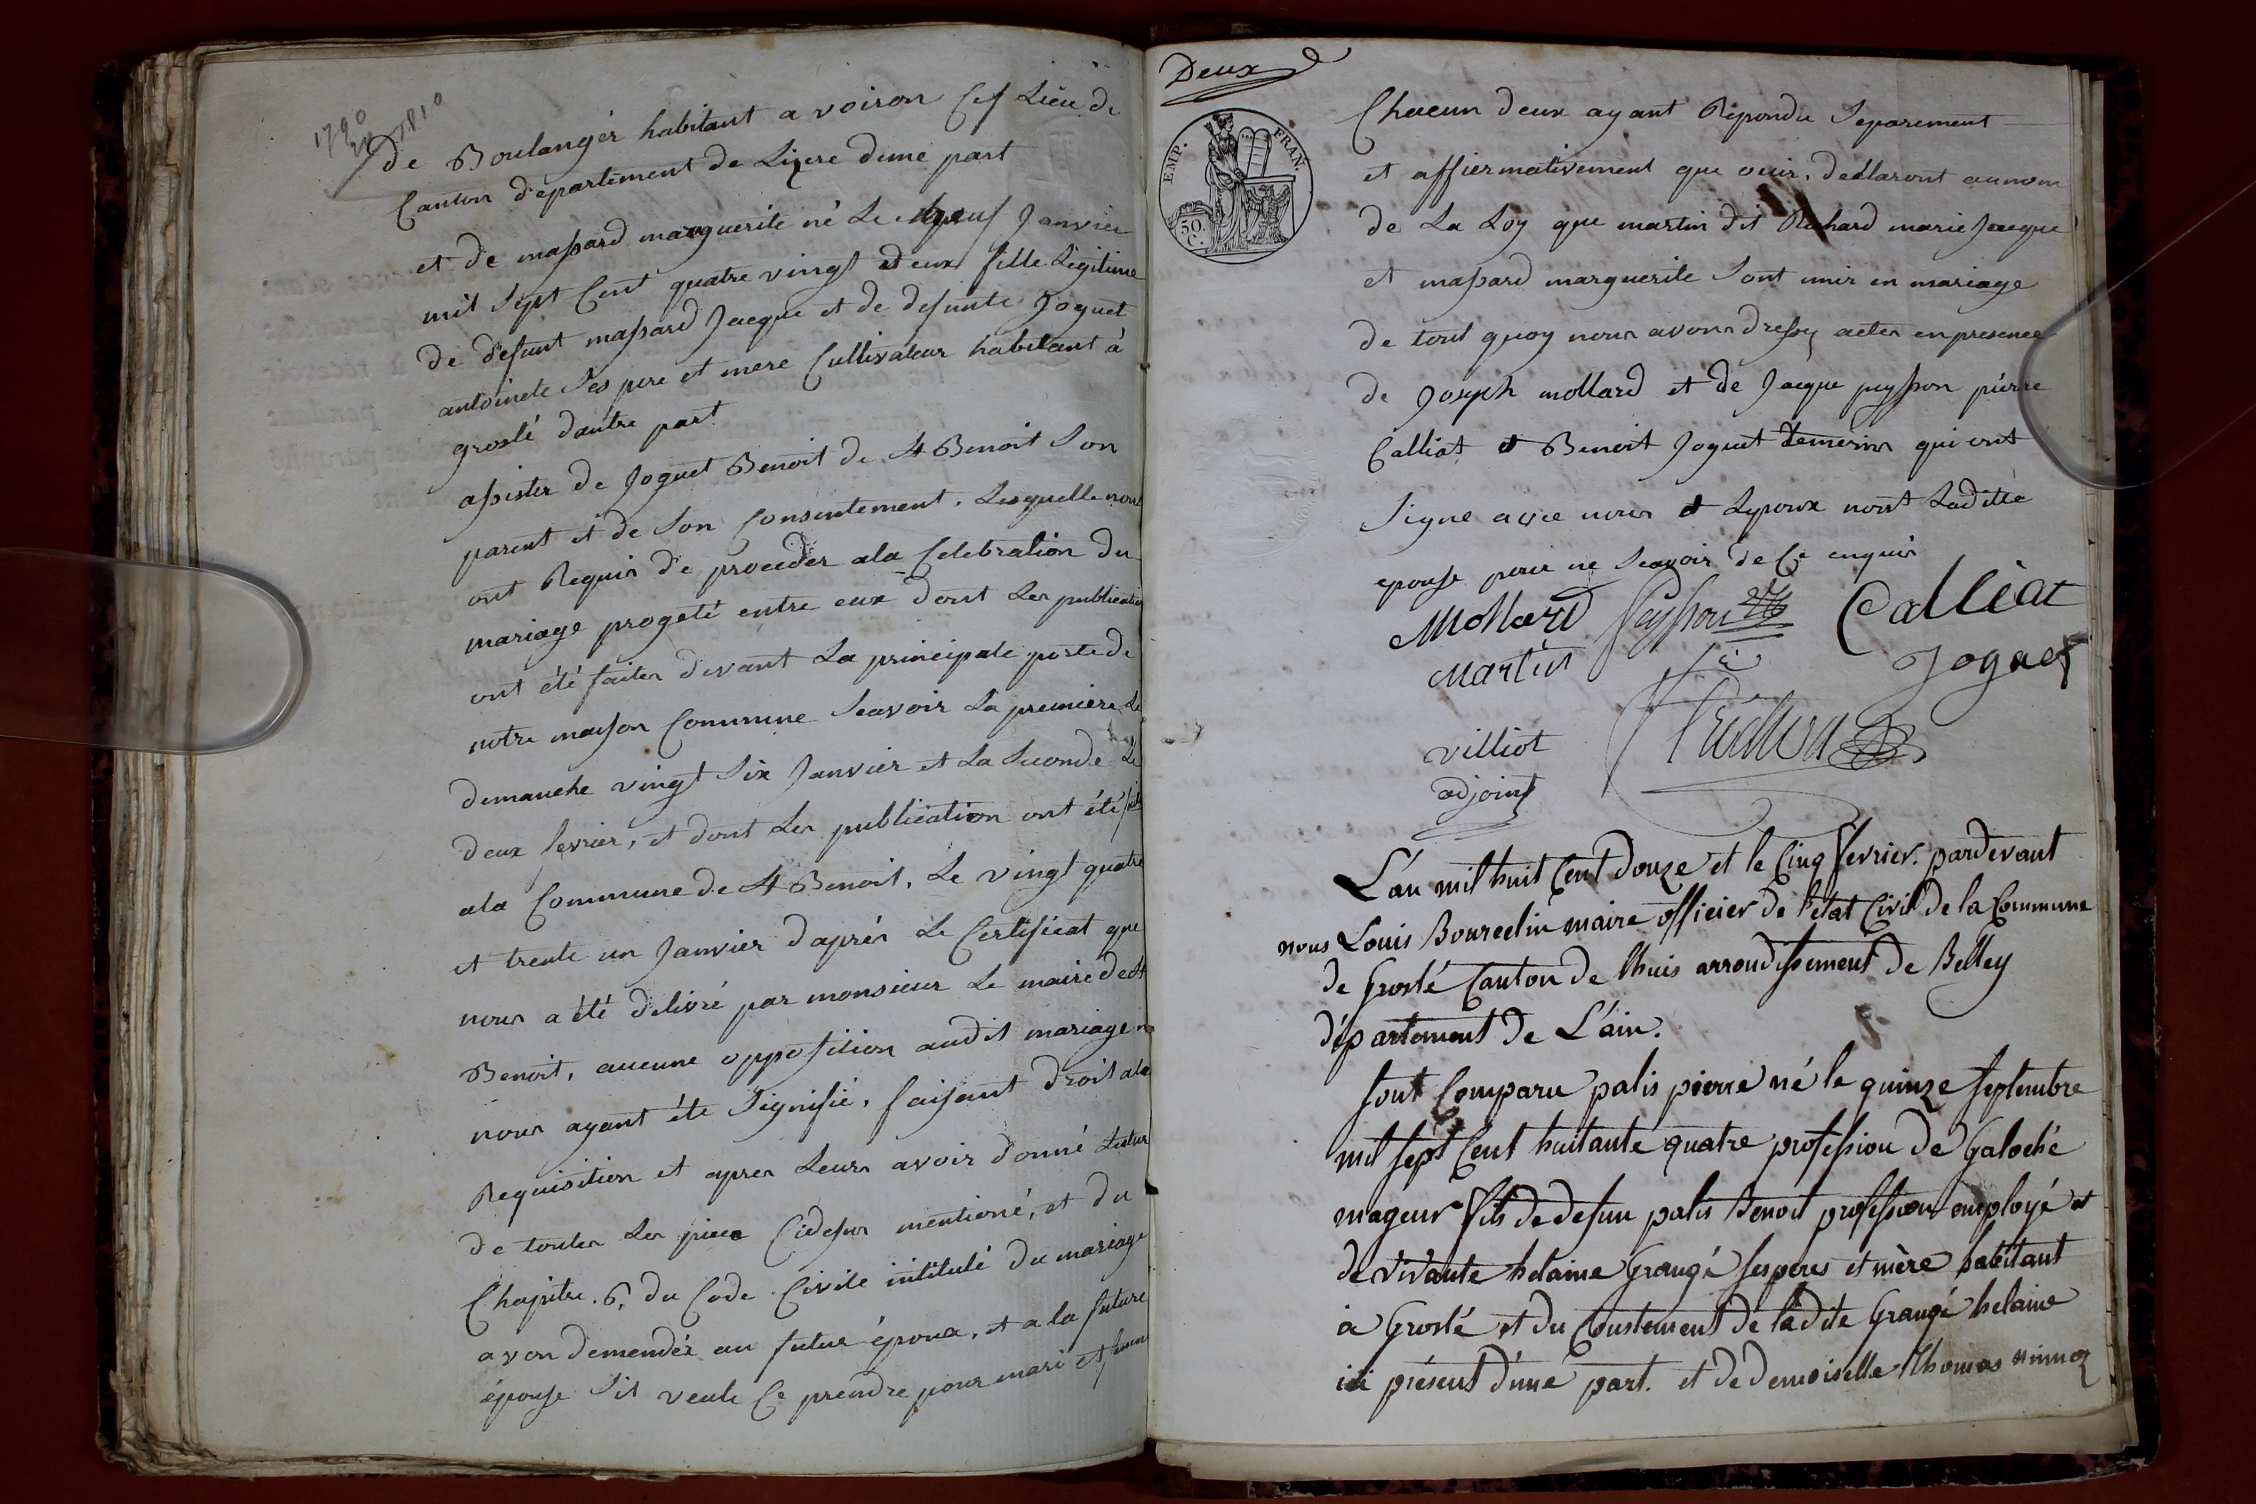 1790
1810
de Boulanger habitant a voiron Chef Lieu de
Canton departement de Lizere dune part
et de massard marguerite né Le neuf Janvier
mil Sept Cent quatre vingt deux fille Légitime
de defunt massard Jacque et de defunte Joguet
antoinete Ses pere et mere Cultivateur habitant à
groslé dautre part
assister de Joguet Benoit de St Benoit Son
parent et de Son Consentement. Lesquelle nous
ont Requis de proceder ala Celebration du
mariage progeté entre eux dont Les publication
ont été faites devant La principale porte de
notre maison Commune Scavoir La premiere Le
dimanche vingt Six Janvier et La Seconde Le
deux fevrier, et dont Les publication ont été
ala Commune de St Benoit, Le vingt quatre
et trente un Janvier daprés Le Certificat que
nous a été delivré par monsieur Le maire de St
Benoit, aucune opposition audit mariage n
nous ayant été Signifié, faisant droit ala
Requisition et apres Leurs avoir donné Lectur
de toutes Les piece Cidesus mentioné, et du
Chapitre .6. du Code Civile intitulé du mariage
avon demendéz au futur époux, et a la future
épouse Sil veule Ce prendre pour mari et femme
Deux
EMP. FRAN.
50.
C.
Chacun deux ayant Répondu Separement
et affiermativement que ouis, déclaront aunom
de La Loy que martin dit Richard marie Jacque
et massard marguerite Sont unis en mariage
de tout quoy nous avons dressez actes en presence
de Joseph mollard et de Jacque peysson pierre
Calliat et Benoit Joguet temoins qui ont
Signe avec nous et Lepoux nont Laditte
epouse pour ne Scavoir de Ce enquis
Mollard Peysson Calliat
Martin Joguet
villiot
adjoint
L'an mil huit Cent douze et le Cinq fevrier. pardevant
nous Louis Bourdin maire officier de l'état Civil de la Commune
de Groslé Canton de lhuis arrondissement de Belley
département de L'ain.
Sont Comparu palis pierre né le quinze septembre
mil sept Cent huitante quatre profession de Galoché
mageur fils de defun palis Benoit profession employé et
de vivante helaine Grangé ses peres et mère habitant
à Groslé et du Consteument de ladite Grangé helaine
ici présent d'une part. et de demoiselle thomas